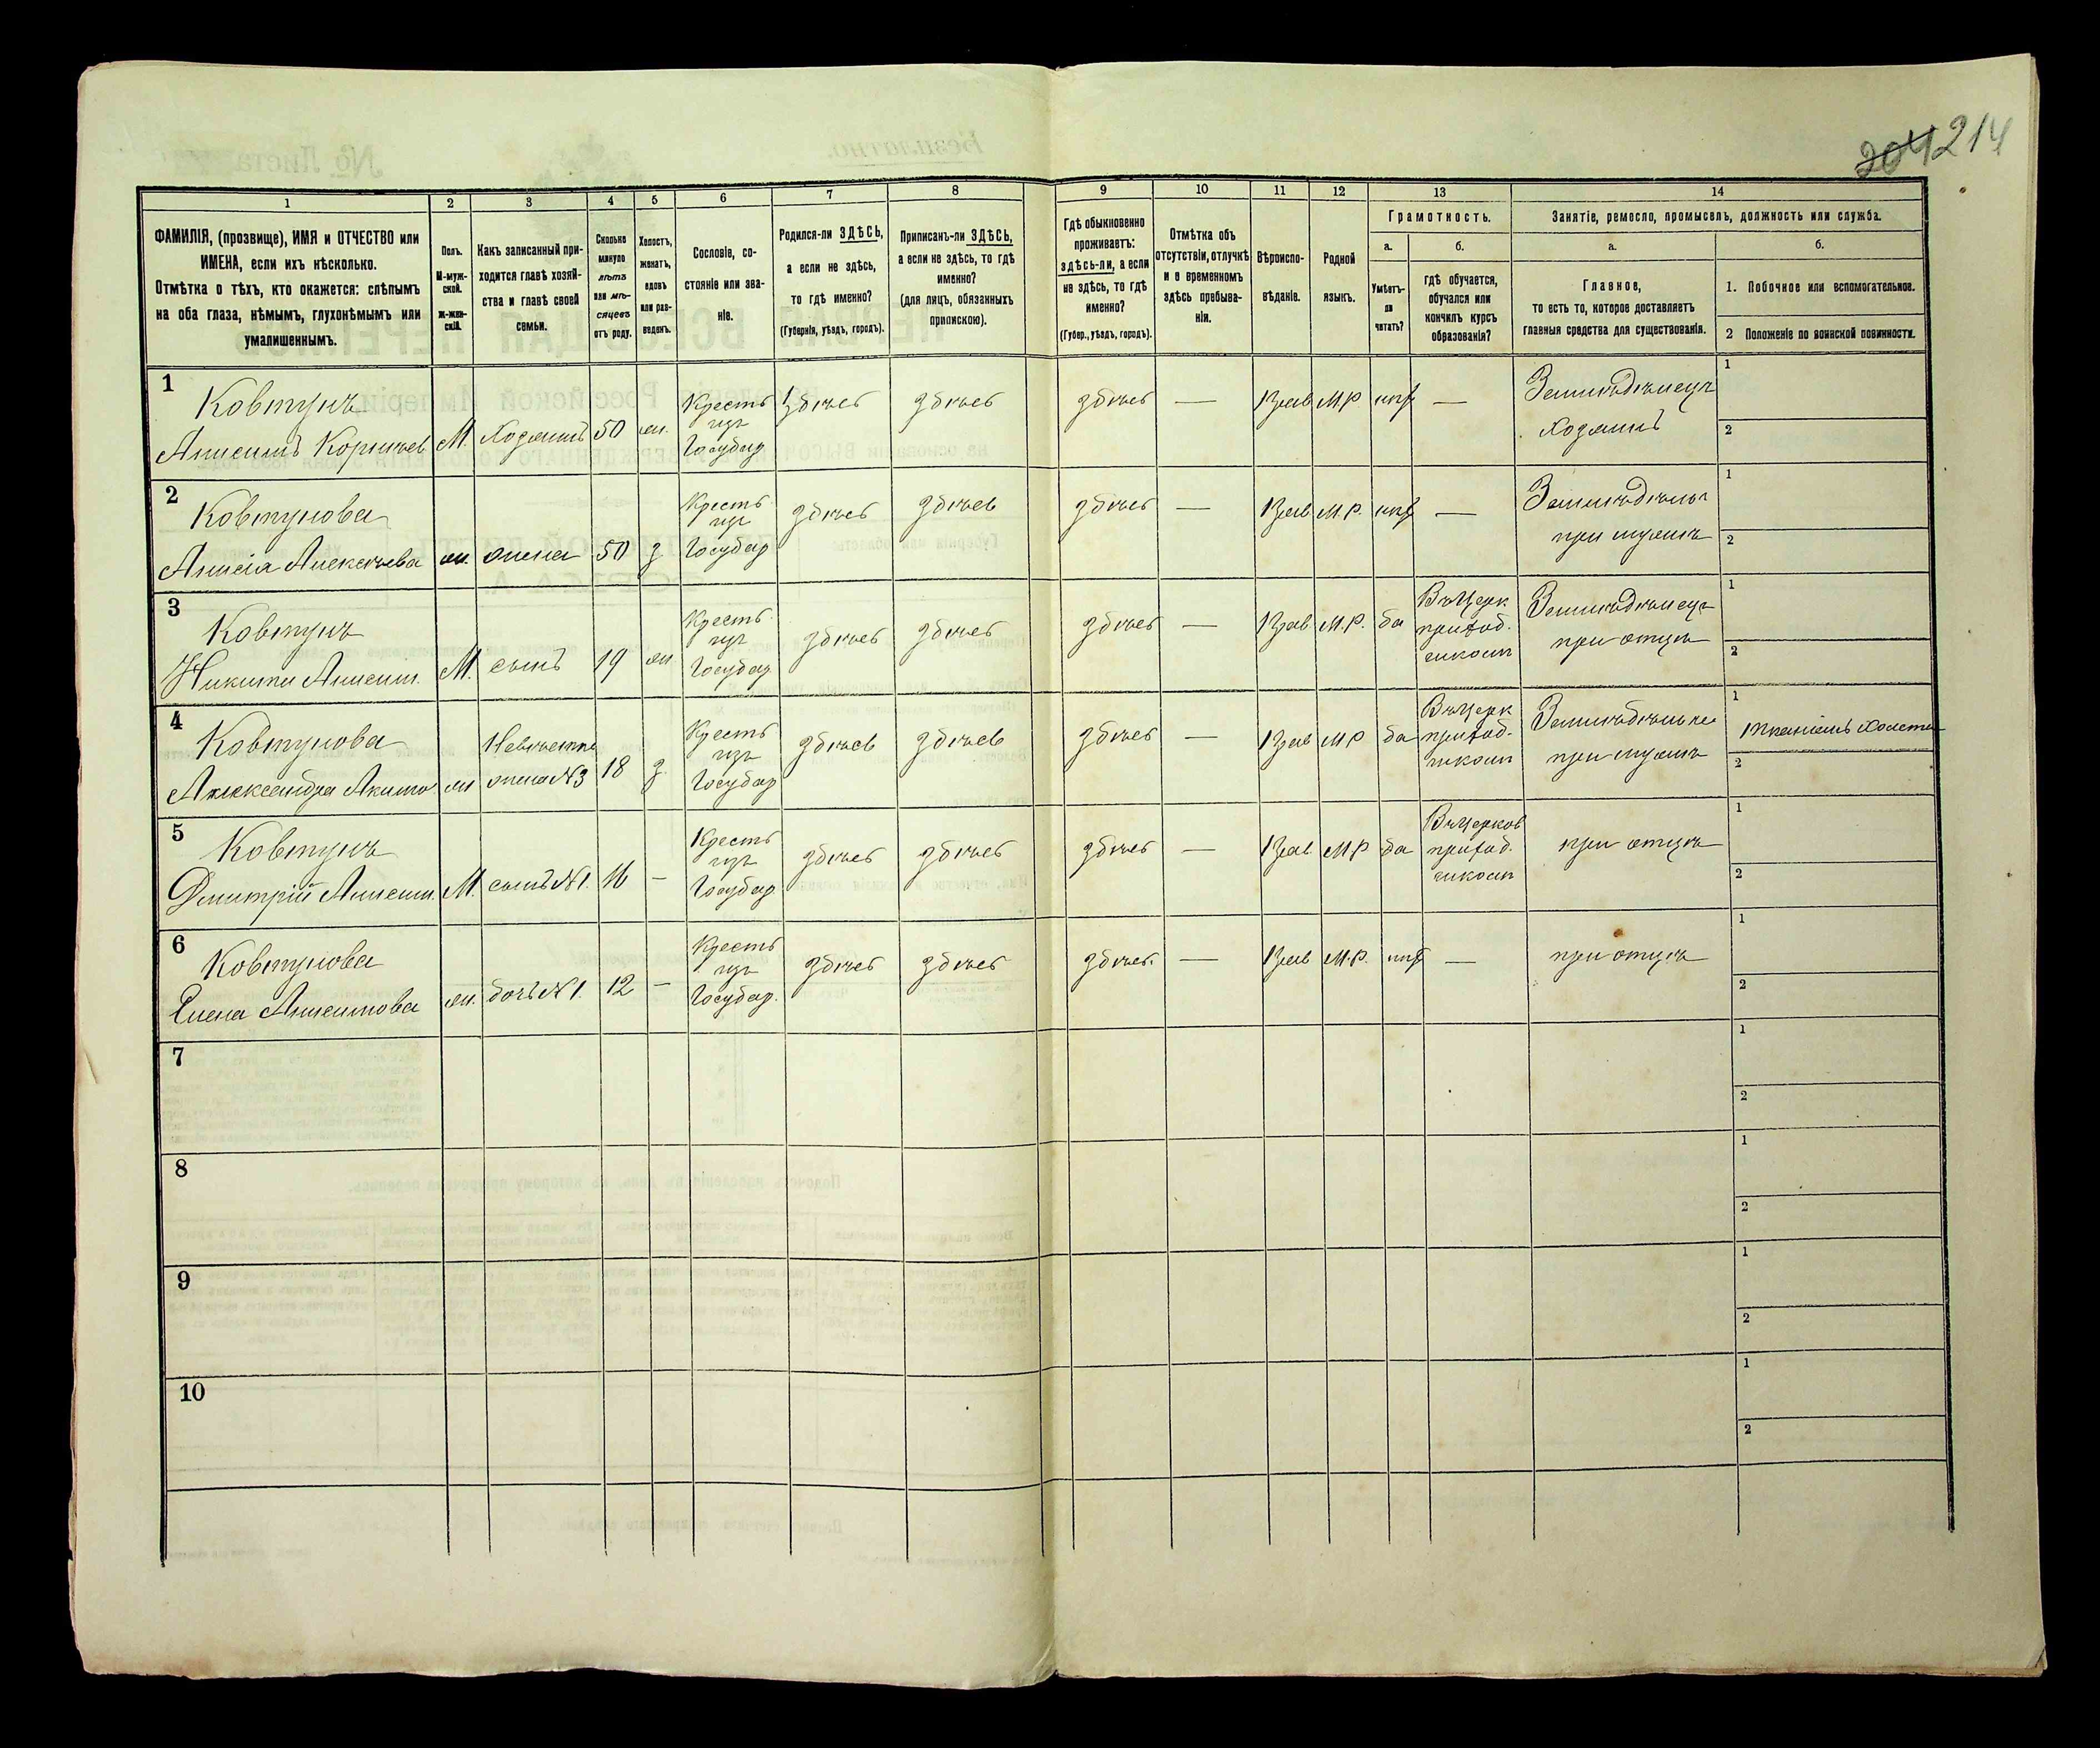 204 214
1 2 3 4 5 6 7 8 9 10 11 12 13 14
ФАМИЛІЯ, (прозвище), ИМЯ и ОТЧЕСТВО или
ИМЕНА, если ихъ нѣсколько.
Отмѣтка о тѣхъ, кто окажется: слѣпымъ
на оба глаза, нѣмымъ, глухонѣмымъ или
умалишеннымъ.
Полъ.
М-муж-
ской.
ж-жен-
скій.
Какъ записанный при-
ходится главѣ хозяй-
ства и главѣ своей
семьи.
Сколько
минуло
лѣтъ
или мѣ-
сяцевъ
отъ роду.
Холостъ,
женатъ,
вдовъ
или раз-
веденъ.
Сословіе, со-
стояніе или зва-
ніе.
Родился-ли ЗДѢСЬ,
а если не здѣсь,
то гдѣ именно?
(Губернія, уѣздъ, городъ).
Приписанъ-ли ЗДѢСЬ,
а если не здѣсь, то гдѣ
именно?
(для лицъ, обязанныхъ
припискою).
Гдѣ обыкновенно
проживаетъ:
здѣсь-ли, а если
не здѣсь, то гдѣ
именно?
(Губер., уѣздъ, городъ).
Отмѣтка объ
отсутствіи, отлучкѣ
и о временномъ
здѣсь пребыва-
ніи.
Вѣроиспо-
вѣданіе.
Родной
языкъ.
Грамотность.
а.
Умѣетъ-
ли
читать?
б.
гдѣ обучается,
обучался или
кончилъ курсъ
образованія?
Занятіе, ремесло, промыселъ, должность или служба.
а.
Главное,
то есть то, которое доставляетъ
главныя средства для существованія.
б.
1. Побочное или вспомогательное.
2 Положеніе по воинской повинности.
1 Ковтунъ
Анисимъ Корнѣев М. хозяинъ 50 ж.
Кресть
изъ
Государ
здѣсь здѣсь здѣсь — Прав М.Р. нѣт —
Земледѣлецъ
хозяинъ
1
2
2 Ковтунова
Анисія Алексѣева ж. жена 50 з
Кресть
изъ
Государ
здѣсь здѣсь здѣсь — Прав М.Р. нѣт —
при мужѣ
1
2
3 Ковтунъ
Никита Анисим. М. сынъ 19 ж
Кресть
изъ
Государ
здѣсь здѣсь здѣсь — Прав М.Р. да
Въ Церк
приход.
школѣ
Земледѣлецъ
при отцѣ
1
2
4 Ковтунова
Александра Акимо ж
Невѣстка
жена №3 18 з.
Кресть
изъ
Государ
здѣсь здѣсь здѣсь — Прав М.Р. да
Въ Церк
приход.
школѣ
при мужѣ
1
2
5 Ковтунъ
Дмитрій Анисим. М. сынъ №1. 16 —
Кресть
изъ
Государ
здѣсь здѣсь здѣсь — Прав М.Р. да
Въ Церков
приход.
школѣ
при отцѣ
1
2
6 Ковтунова
Елена Анисимова ж. дочь №1. 12 —
Кресть
изъ
Государ.
здѣсь здѣсь здѣсь. — Прав М.Р. нѣт —
при отцѣ
1
2
7
1
2
8
1
2
9
1
2
10
1
2